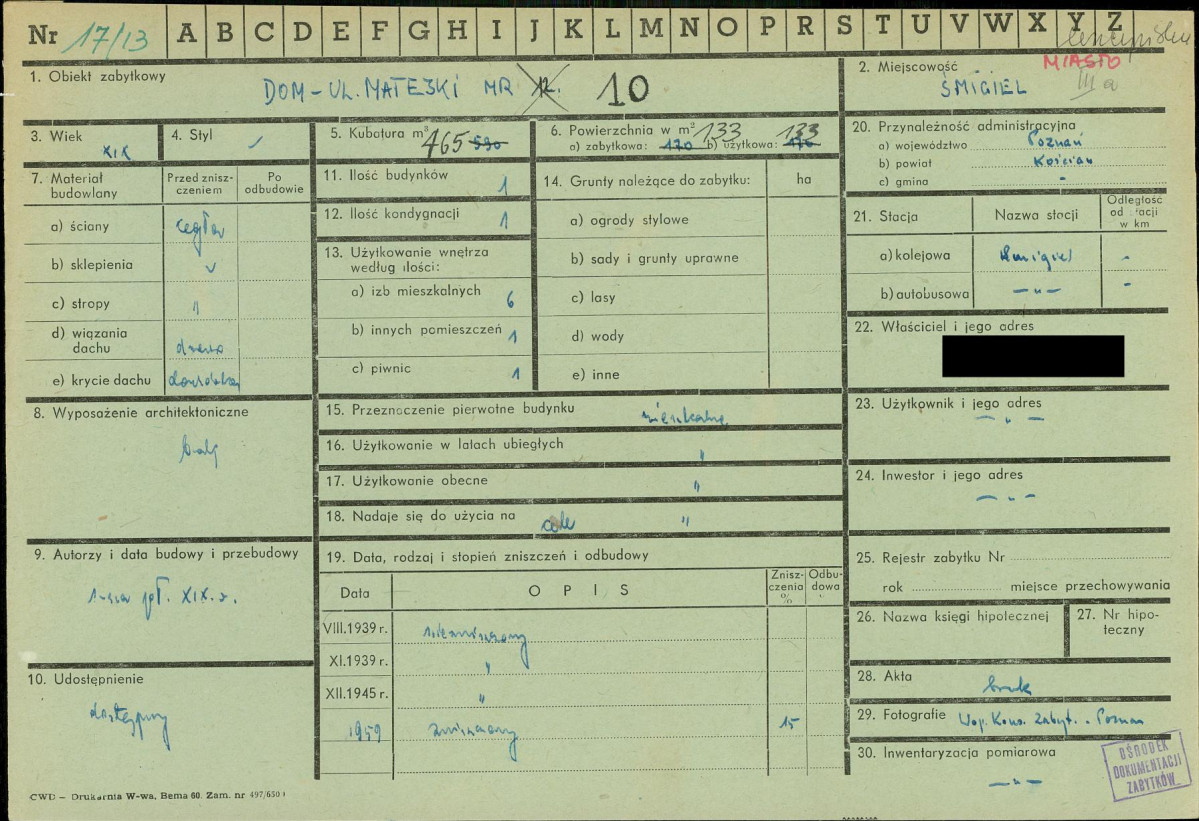 Nr 17/13 A B C D E F G H I J K L M N O P R S T U V W X Y Z
MIASTO
III a
1. Obiekt zabytkowy
DOM – UL. MATEJKI NR 12. 10
2. Miejscowość
ŚMIGIEL
3. Wiek
XIX
4. Styl
5. Kubatura m³
465 590
6. Powierzchnia w m²
a) zabytkowa: 170 133 b) użytkowa: 170 133
20. Przynależność administracyjna
a) województwo Poznań
b) powiat Kościan
c) gmina -
7. Materiał budowlany
Przed zniszczeniem
Po odbudowie
a) ściany cegła
b) sklepienia
c) stropy
d) wiązania dachu drewno
e) krycie dachu dachówka
11. Ilość budynków 1
12. Ilość kondygnacji 1
13. Użytkowanie wnętrza według ilości:
a) izb mieszkalnych 6
b) innych pomieszczeń 1
c) piwnic 1
14. Grunty należące do zabytku: ha
a) ogrody stylowe
b) sady i grunty uprawne
c) lasy
d) wody
e) inne
21. Stacja
Nazwa stacji
Odległość od stacji w km
a) kolejowa Śmigiel -
b) autobusowa –"– -
22. Właściciel i jego adres
23. Użytkownik i jego adres
– " –
24. Inwestor i jego adres
– " –
8. Wyposażenie architektoniczne
brak
15. Przeznaczenie pierwotne budynku mieszkalne
16. Użytkowanie w latach ubiegłych "
17. Użytkowanie obecne "
18. Nadaje się do użycia na cele "
9. Autorzy i data budowy i przebudowy
1-sza poł. XIX. w.
19. Data, rodzaj i stopień zniszczeń i odbudowy
Data
OPIS
Zniszczenia %
Odbudowa
VIII.1939 r. niezniszczony
XI.1939 r. "
XII.1945 r. "
1959 zniszczony 15
10. Udostępnienie
dostępny
25. Rejestr zabytku Nr
rok miejsce przechowywania
26. Nazwa księgi hipotecznej
27. Nr hipoteczny
28. Akta
brak
29. Fotografie Woj. Kons. Zabyt. - Poznań
30. Inwentaryzacja pomiarowa
–"–
OŚRODEK
DOKUMENTACJI
ZABYTKÓW
CWD – Drukarnia W-wa, Bema 60. Zam. nr 497/650